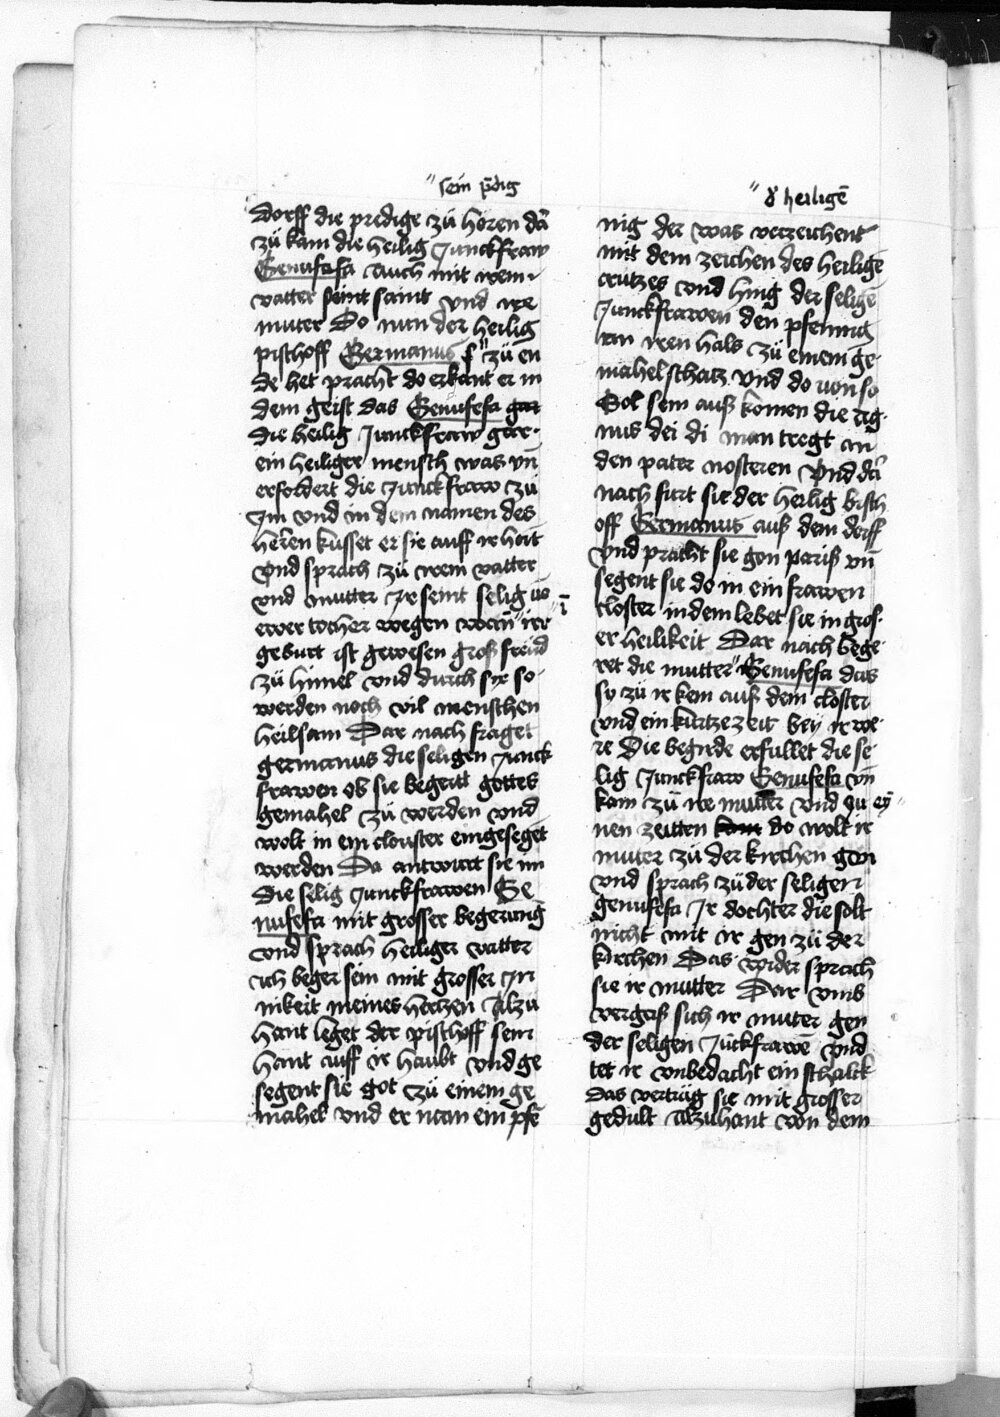 " sein p̄dig
dorff die predige zü hören dā
zü kam die heilig Junckfraw
Genufefa Auch mit irem
vatter seint saint vnd ire
muter Do nun der heilig
pischoff Germanus s " zü en
de het pracht do erkant er in
dem geist das Genufefa gar
die heilig Junckfraw gar
ein heiliger mensch was vn̄
erfordert die Junckfraw zü
Jm vnd in dem namen des
herren kusset er sie auff ir hait
Vnd sprach zü irem vatter
vnd mutter Jr seint selig vō
ewer tocher wegen wan̄ " irer " ī
geburt ist gewesen groß freüd
zü himel vnd durch sye so
werden noch vil menschen
heilsam Dar nach fraget
germanus die seligen Junck
frawen ob sie begertt gottes
gemahel zü werden vnd
wolt in ein clouster eingeseget
werden Da antwurt sie im
die selig Junckfrawen Ge
nufefa mit grosser begerung
vnd sprach heiliger vatter
ich beger sein mit grosser Jn
nikeit meines hertzen Alzü
hant leget der pischoff sein
hant auff ir haubt vnd ge
segent sie got zü einem ge
mahel vnd er nam ein pfē
" d' heiligē
nig der was verzeichent
mit dem zeichen des heiligē
crutzes vnd hing der seligē
Junckfrawen den pfennig
an iren hals zü einem ge
mahelschatz Vnd do von so
Sol sein auß komen die ag
nus dei di man tregt an
den pater nosteren Vnd dā
nach furt sie der heilig bisch
off Germanus auß dem dorff
Vnd pracht sie gon pariß vn̄
segent sie do in ein frawen
closter in dem lebet sie in gros
er heilikeit Dar nach bege
ret die mutter " Genufefa das
sy zü ir kem auß dem closter
vnd ein kurtze zeit bey ir we
re Die begirde erfullet die se
lig Junckfraw Genufefa vn̄
kam zü ire mutter Vnd zu ey "
nen zeitten kam do wolt ir
muter zü der kirchen gen
vnd sprach zü der seligen
genufefa Jr dochter die solt
nicht mit ir gen zü der
kirchen Das wider sprach
sie ir mutter Dar vmb
vergaß sich ir muter gen
der seligen Jūckfrawē vnd
tet ir vnbedacht ein schalck
das vertrüg sie mit grosser
gedult Alzuhant von dem